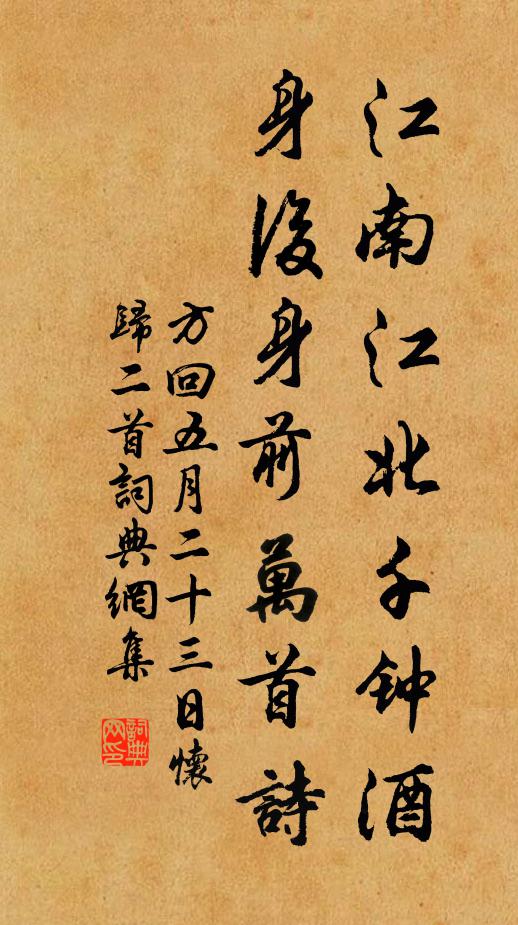 江南江北千钟酒
身後身前萬首詩
方回五月二十三日懷
歸二首詞典網集
詞典
网印